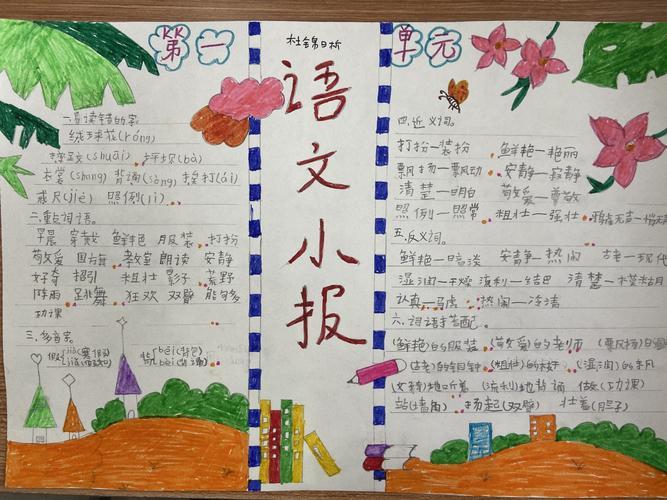 第一
一.易读错的字
绒球花(róng)
摔跤(shuāi) 坪坝(bà)
衣裳(shang) 背诵(sòng) 挨打(ái)
戒尺(jiè) 照例(lì)
二.重点词语。
早晨 穿戴 鲜艳 服装 打扮
敬爱 国旗 教室 朗读 安静
好奇 招引 粗壮 影子 荒野
阵雨 跳舞 狂欢 双臂 能够多
功课
三.多音字。
假 jià(寒假)
背 bēi(背包) bèi(背诵)
杜锦日析
语文小报
单元
四.近义词。
打扮—装扮 鲜艳—艳丽
飘扬—飘动 安静—寂静
清楚—明白 敬爱—尊敬
照例—照常 粗壮—强壮
五.反义词。
鲜艳—暗淡 安静—热闹 古老—现代
湿润—干燥 流利—结巴 清楚—模糊
认真—马虎 热闹—冷清
六.词语搭配。
(鲜艳)的服装 (敬爱)的老师
(古老)的铜钟 (粗壮)的枝干 (湿润)的
(流利)地背诵 做(功课)
站(墙角) 扬起(双臂)